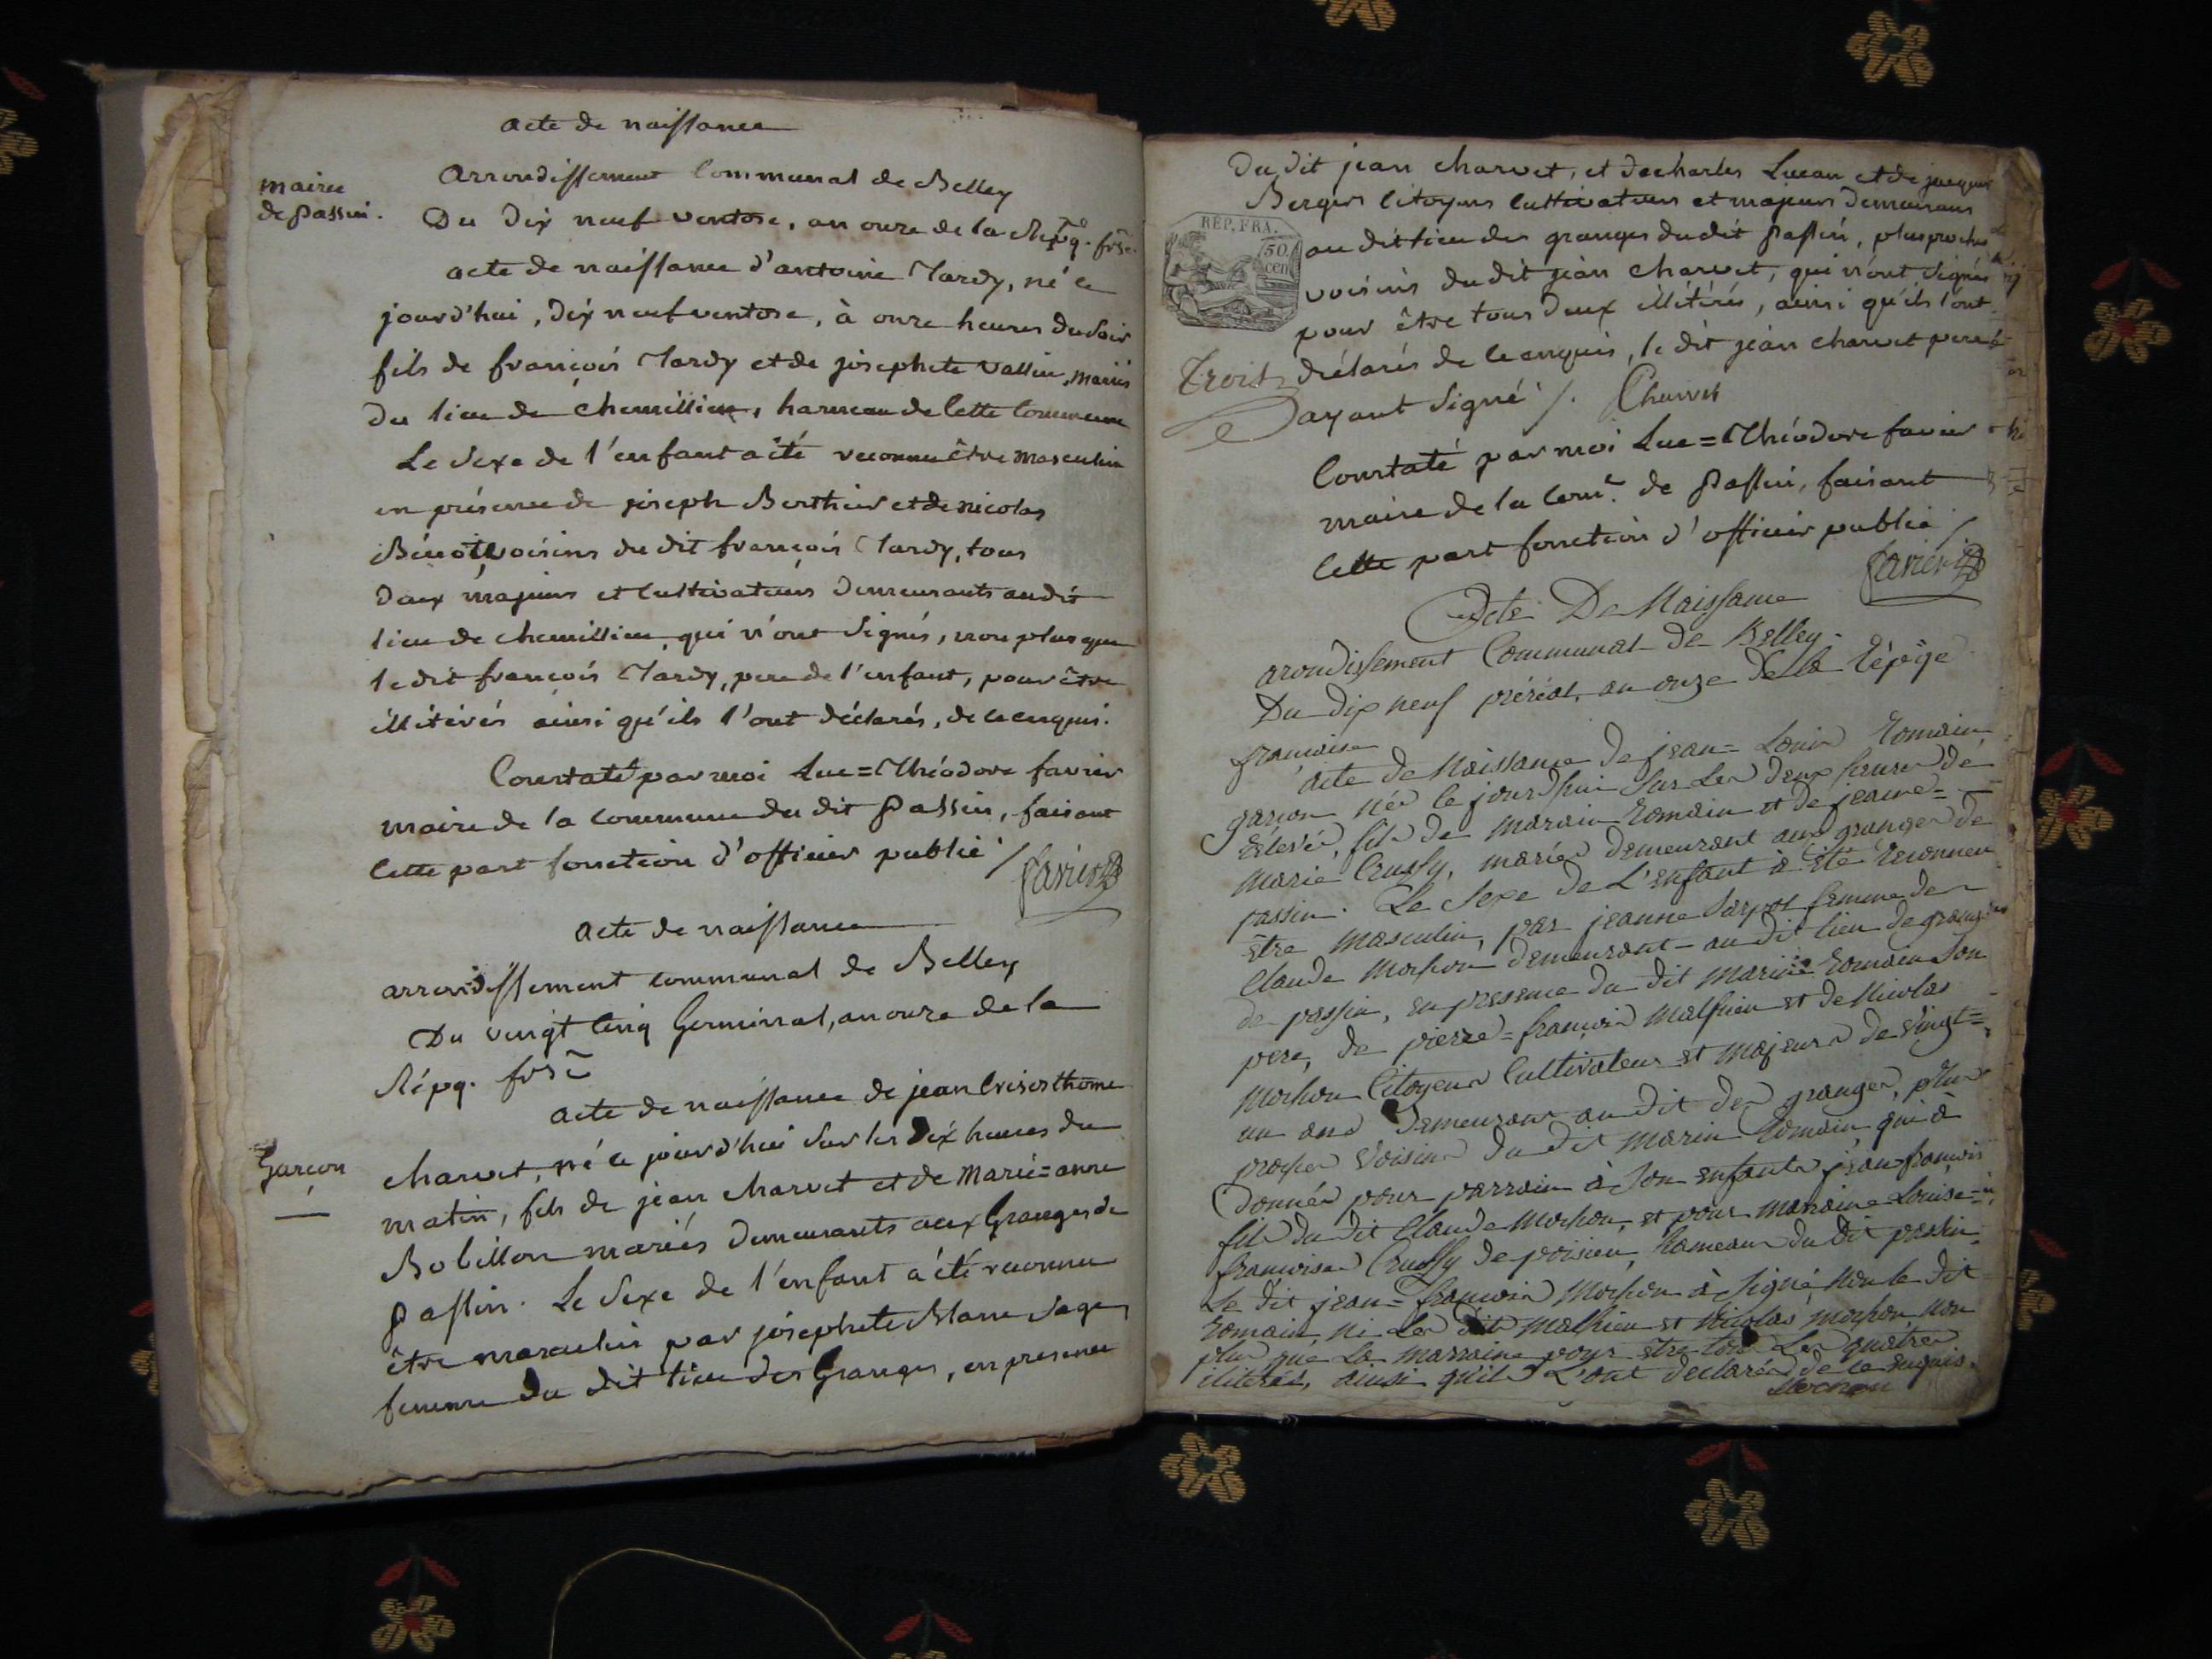 acte de naissance
mairie
de passin.
arrondissement Communal de Belley
Du dix neuf ventose, an onze de la Répq. frse
acte de naissance d'antoine Tardy, né ce
jourd'hui, dix neuf ventose, à onze heures du soir
fils de françois Tardy et de josephete vallin, mariés
du lieu de chemillieu, hameau de Cette Commune
Le Sexe de l'enfant a été reconnu être masculin
en présence de joseph Berthier et de nicolas
Bénoit voisins du dit françois Tardy, tous
deux majeurs et Cultivateurs demeurants audit
lieu de chemillieu qui n'ont signés, non plus que
le dit françois Tardy, pere de l'enfant, pour être
illitérés ainsi qu'ils l'ont déclarés, de ce enquis.
Constaté par moi Luc=Théodore favier
maire de la commune du dit passin, faisant
Cette part fonction d'officier public /.
favier
acte de naissance
arrondissement communal de Belley
Du vingt Cinq Germinal, an onze de la
Répq. frse
acte de naissance de jean Crisosthome
Garçon
charvet, né ce jourd'hui sur les Dix heures du
matin, fils de jean charvet et de Marie=anne
Bobillon mariés demeurants aux Granges de
passin. Le Sexe de l'enfant a été reconnu
être masculin par josephete Blanc sage
femme du dit lieu des Granges, en présence
du dit jean charvet, et de charles Lucan et de jacques
Berger Citoyens Cultivateurs et majeurs demeurans
REP. FRA.
50 cen
au dit lieu des granges du dit passin, plus proches
voisins du dit jean charvet, qui n'ont signés
pour être tous deux illitérés, ainsi qu'ils l'ont
Trois
déclarés de ce enquis, le dit jean charvet pere
ayant signé /. Charvet
Constaté par moi Luc=Théodore favier
maire de la Come. de passin, faisant
Cette part fonction d'officier public /
favier
Acte De Naissance
arondissement Communal De Belley.
Du dix neuf préréal, an onze De La Répqe
françaisse
acte de Naissance De jean=Louis Romain
garçon né ce jourdhui sur Les deux heures de
Relevé, fils de marain Romain et de jeanne=
marie Crussy, mariés demeurant aux granges de
passin. Le sexe de L'enfant à été Reconneu
être masculin, par jeanne femme de
Claude Mochon demeurant au dit lieu de granges
de passin, en pressence du dit marin Romain son
pere, de pierre=françois Malhieu et de Nicolas
Mochon Citoyens Cultivateurs et majeurs de vingt=
un ans demeurant au dit des granges, plus
proches voisins du dit marin Romain, qui à
Donnés pour parrain à son enfants jean françois
fils du dit Claude Mochon, et pour marraine Louise=
françoise Crussy de poisieu, hameaux du dit passin.
Le dit jean=françois Mochon à signé, non le dit
Romain, ni Les dit Malhieu et Nicolas mochon, non
plus que La marraine pour être tous Les quatres
iliterés, ainsi qu'ils L'ont declarés de ce enquis.
Mochon